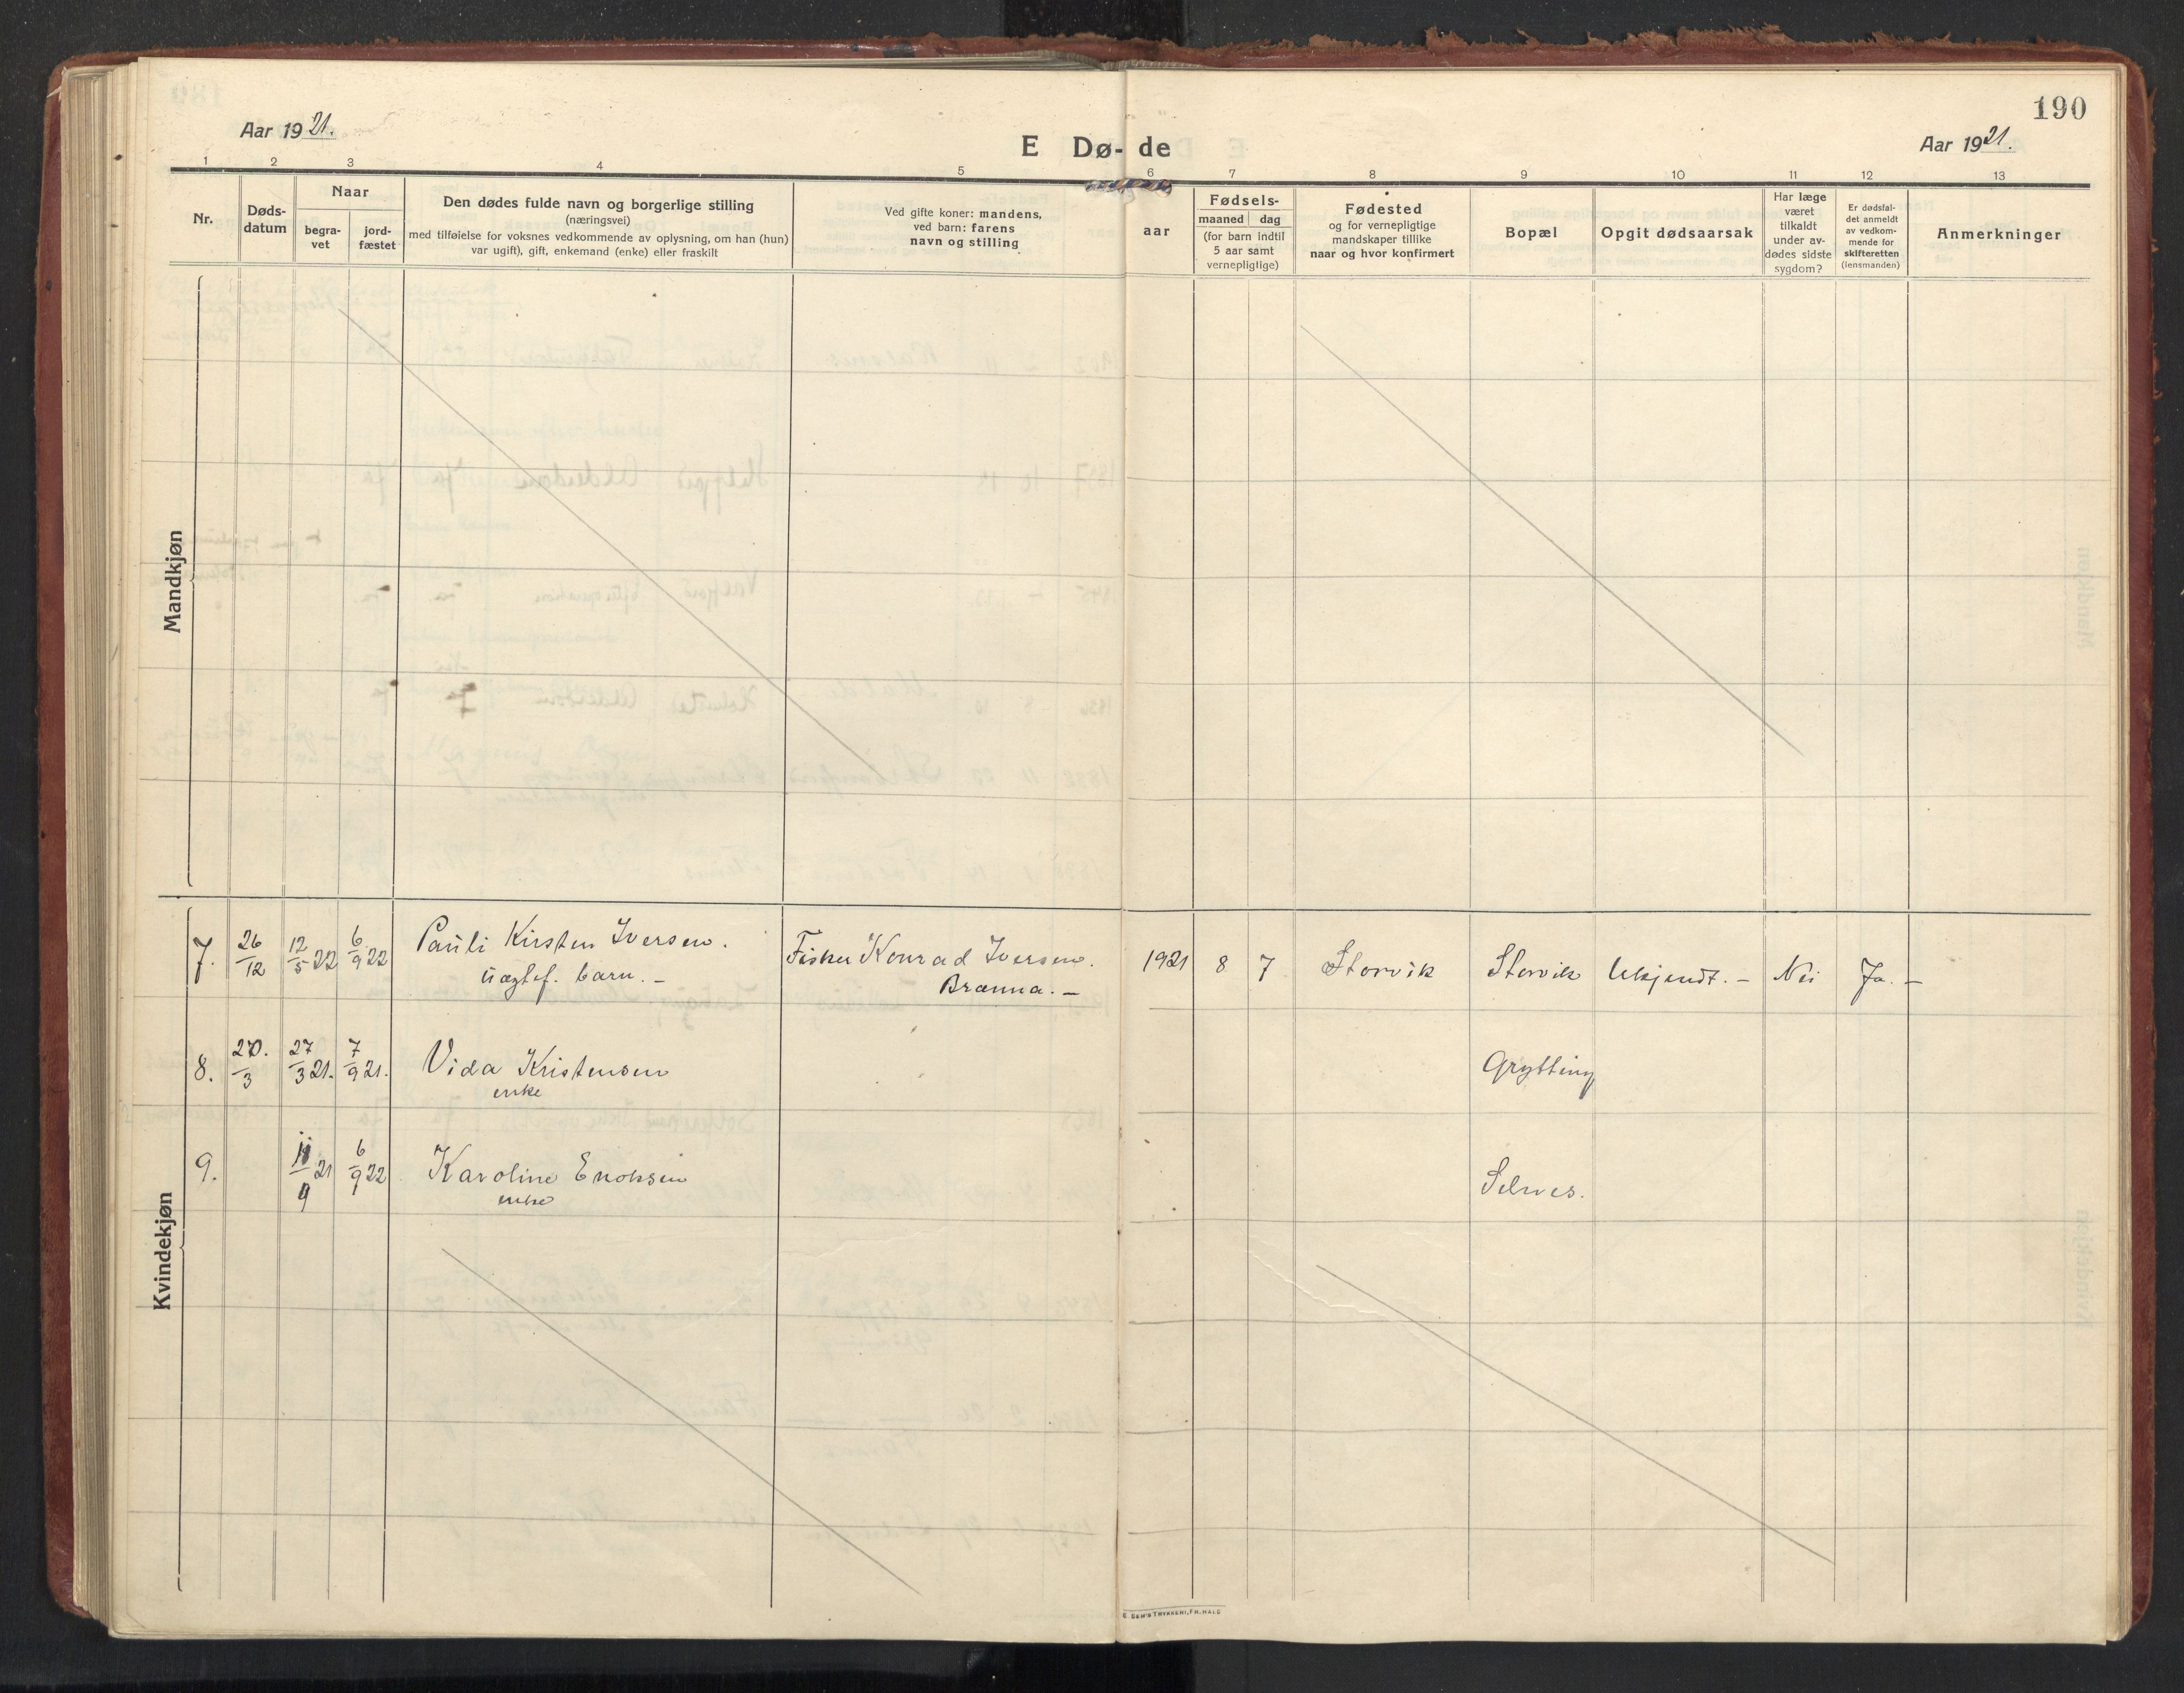 190
Aar 1921.
E Dø- de
Aar 1921.
1 2 3 4 5 6 7 8 9 10 11 12 13
Nr.
Døds-
datum
Naar
begra-
vet
jord-
fæstet
Den dødes fulde navn og borgerlige stilling
(næringsvei)
med tilføielse for voksnes vedkommende av oplysning, om han (hun)
var ugift), gift, enkemand (enke) eller fraskilt
Ved gifte koner: mandens,
ved barn: farens
navn og stilling
aar
Fødsels-
maaned dag
(for barn indtil
5 aar samt
vernepligtige)
Fødested
og for vernepligtige
mandskaper tillike
naar og hvor konfirmert
Bopæl
Opgit dødsaarsak
Har læge
været
tilkaldt
under av-
dødes sidste
sygdom?
Er dødsfal-
det anmeldt
av vedkom-
mende for
skifteretten
(lensmanden)
Anmerkninger
Mandkjøn
Kvindekjøn
7. 26/12 12/5 22 6/9 22 Pauli Kirsten Iversen. Fisker Konrad Iversen. 1921 8 7 Storvik Storvik Ukjendt. – Nei Ja. –
uægtef. barn. – Brænna. –
8. 20./3 27/3 21. 7/9 21. Vida Kristensen Grytting
enke
9. 21 6/9 22 Karoline Enoksen Selnes.
enke
E. SEM'S TRYKKERI, FR.HALD